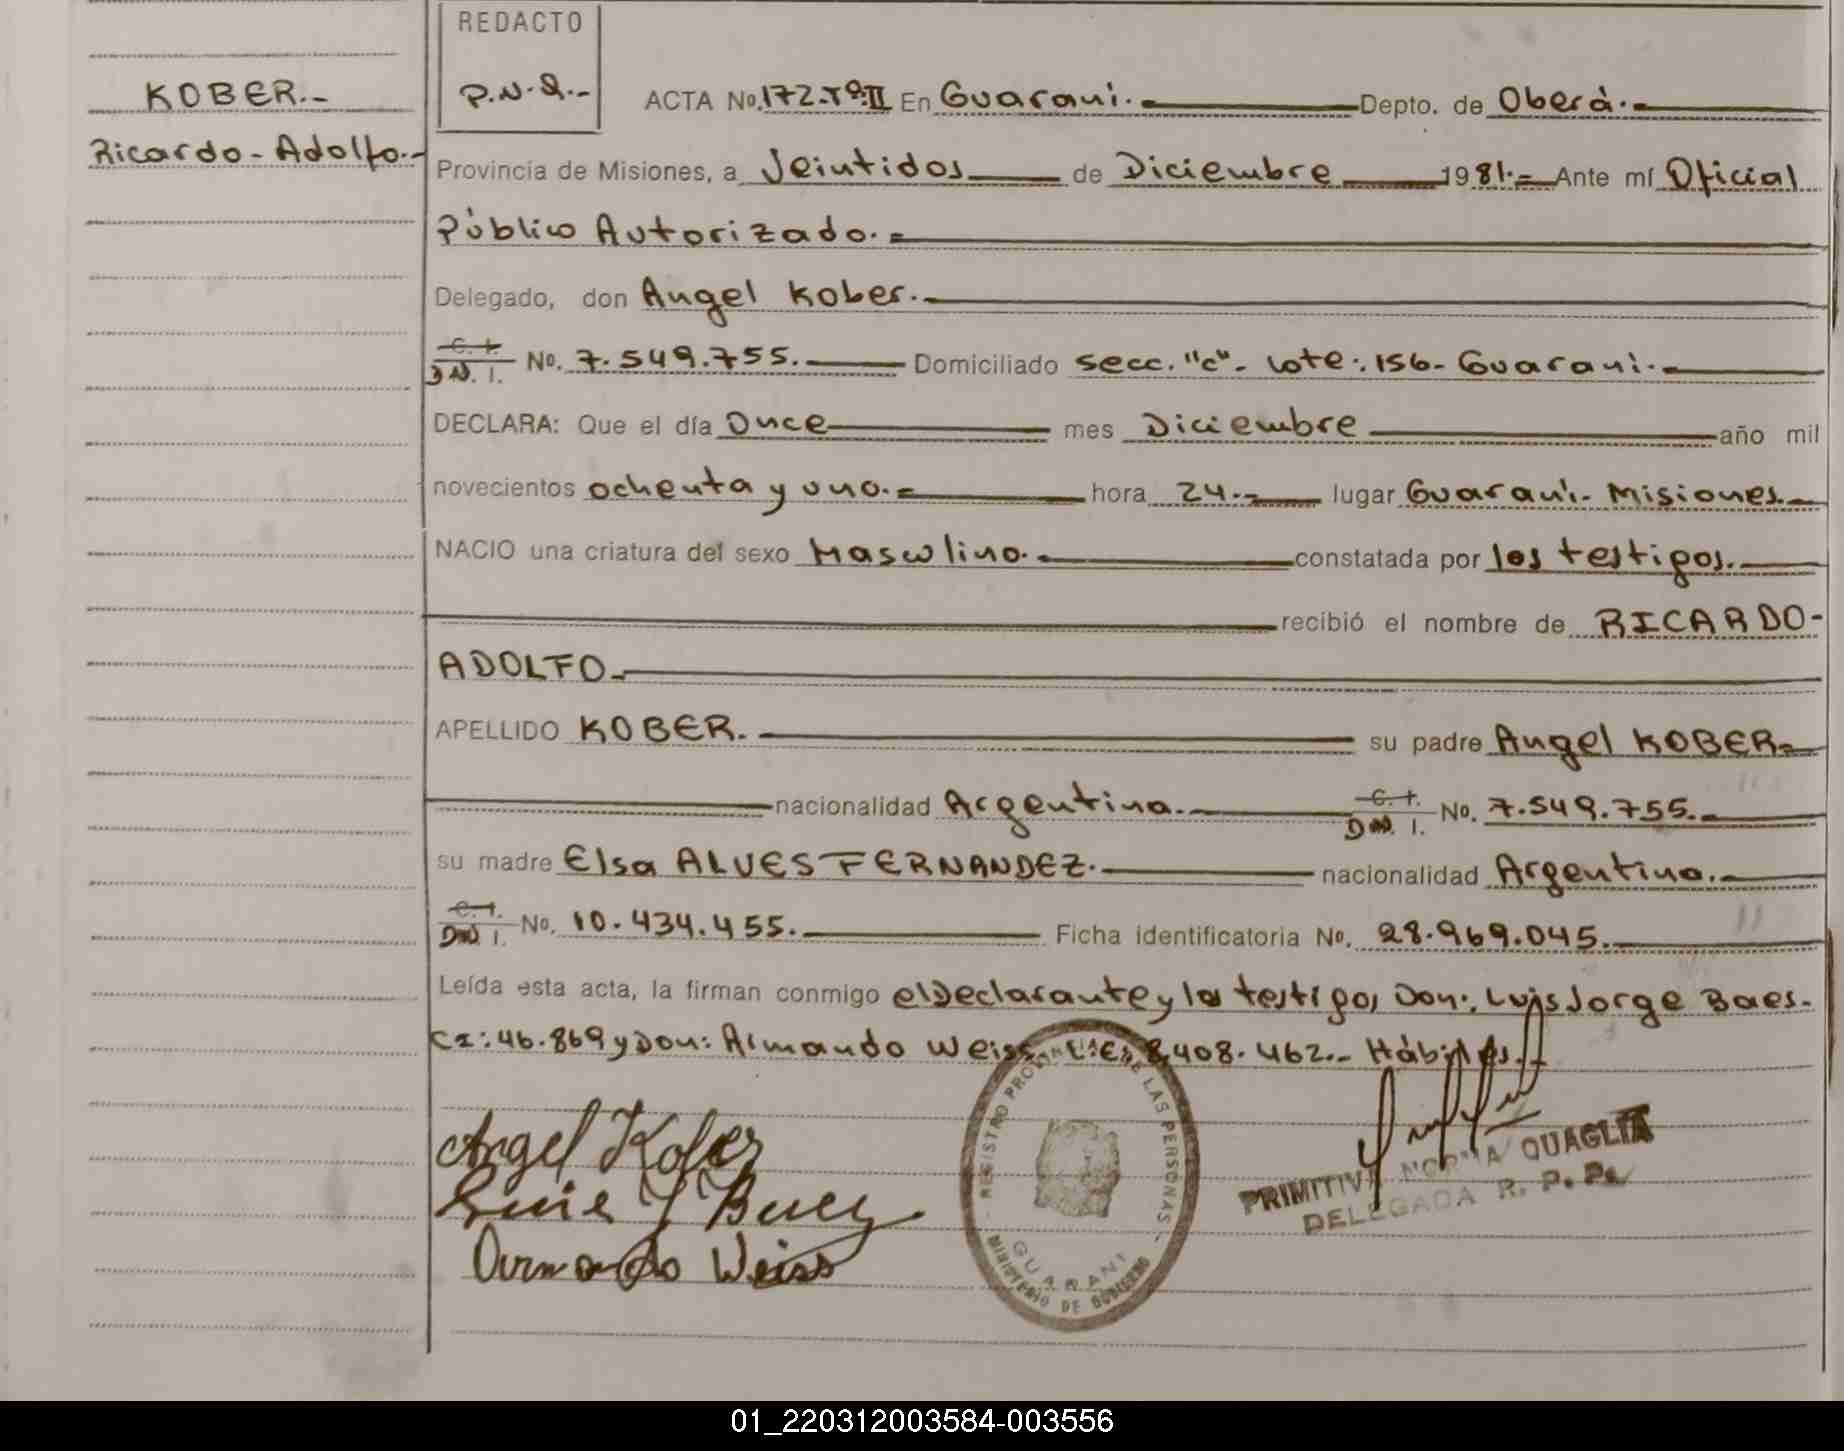 REDACTO
P.N.Q.-
KOBER.-
Ricardo - Adolfo.-
ACTA No. 172-Tº:II En Guaraní.- Depto. de Oberá.-
Provincia de Misiones, a Veintidos de Diciembre 1981.- Ante mí Oficial
Público Autorizado.-
Delegado, don Angel Kober.-
C. I. D.N. I. No. 7.549.755.- Domiciliado secc. "C"- Lote: 156- Guaraní.-
DECLARA: Que el día Once mes Diciembre año mil
novecientos ochenta y uno.- hora 24.- lugar Guaraní- Misiones.-
NACIO una criatura del sexo Masculino.- constatada por los testigos.-
recibió el nombre de RICARDO-
ADOLFO.-
APELLIDO KOBER. su padre Angel KOBER-
nacionalidad Argentina.- C. I. D.N. I. No. 7.549.755.-
su madre Elsa ALVES FERNANDEZ.- nacionalidad Argentina.-
C. I. D.N. I. No. 10.434.455.- Ficha identificatoria No. 28.969.045.-
Leída esta acta, la firman conmigo el Declarante y los testigos Don: Luis Jorge Baes.-
CI: 46.869 y Don: Armando Weiss L:E: 8.408.462.- Hábiles.-
Angel Kober
Luis J Baez
Armando Weiss
REGISTRO PROVINCIAL DE LAS PERSONAS
GUARANI
MINISTERIO DE GOBIERNO
PRIMITIVA NORMA QUAGLIA
DELEGADA R. P. P.
01_220312003584-003556